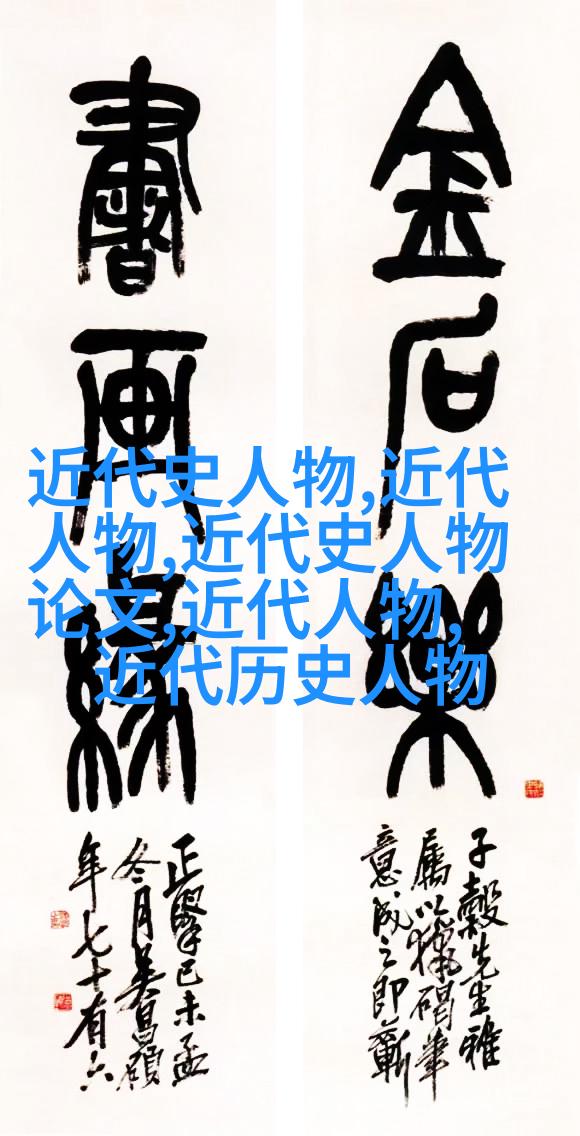 金石樂
子穀先生雅
屬以獵碣筆
意成之即蘄
書画緣
正 己未孟
冬月吴昌碩
年七十有六
近代史人物,近代
人物,近代史人物
论文,近代人物,
近代历史人物